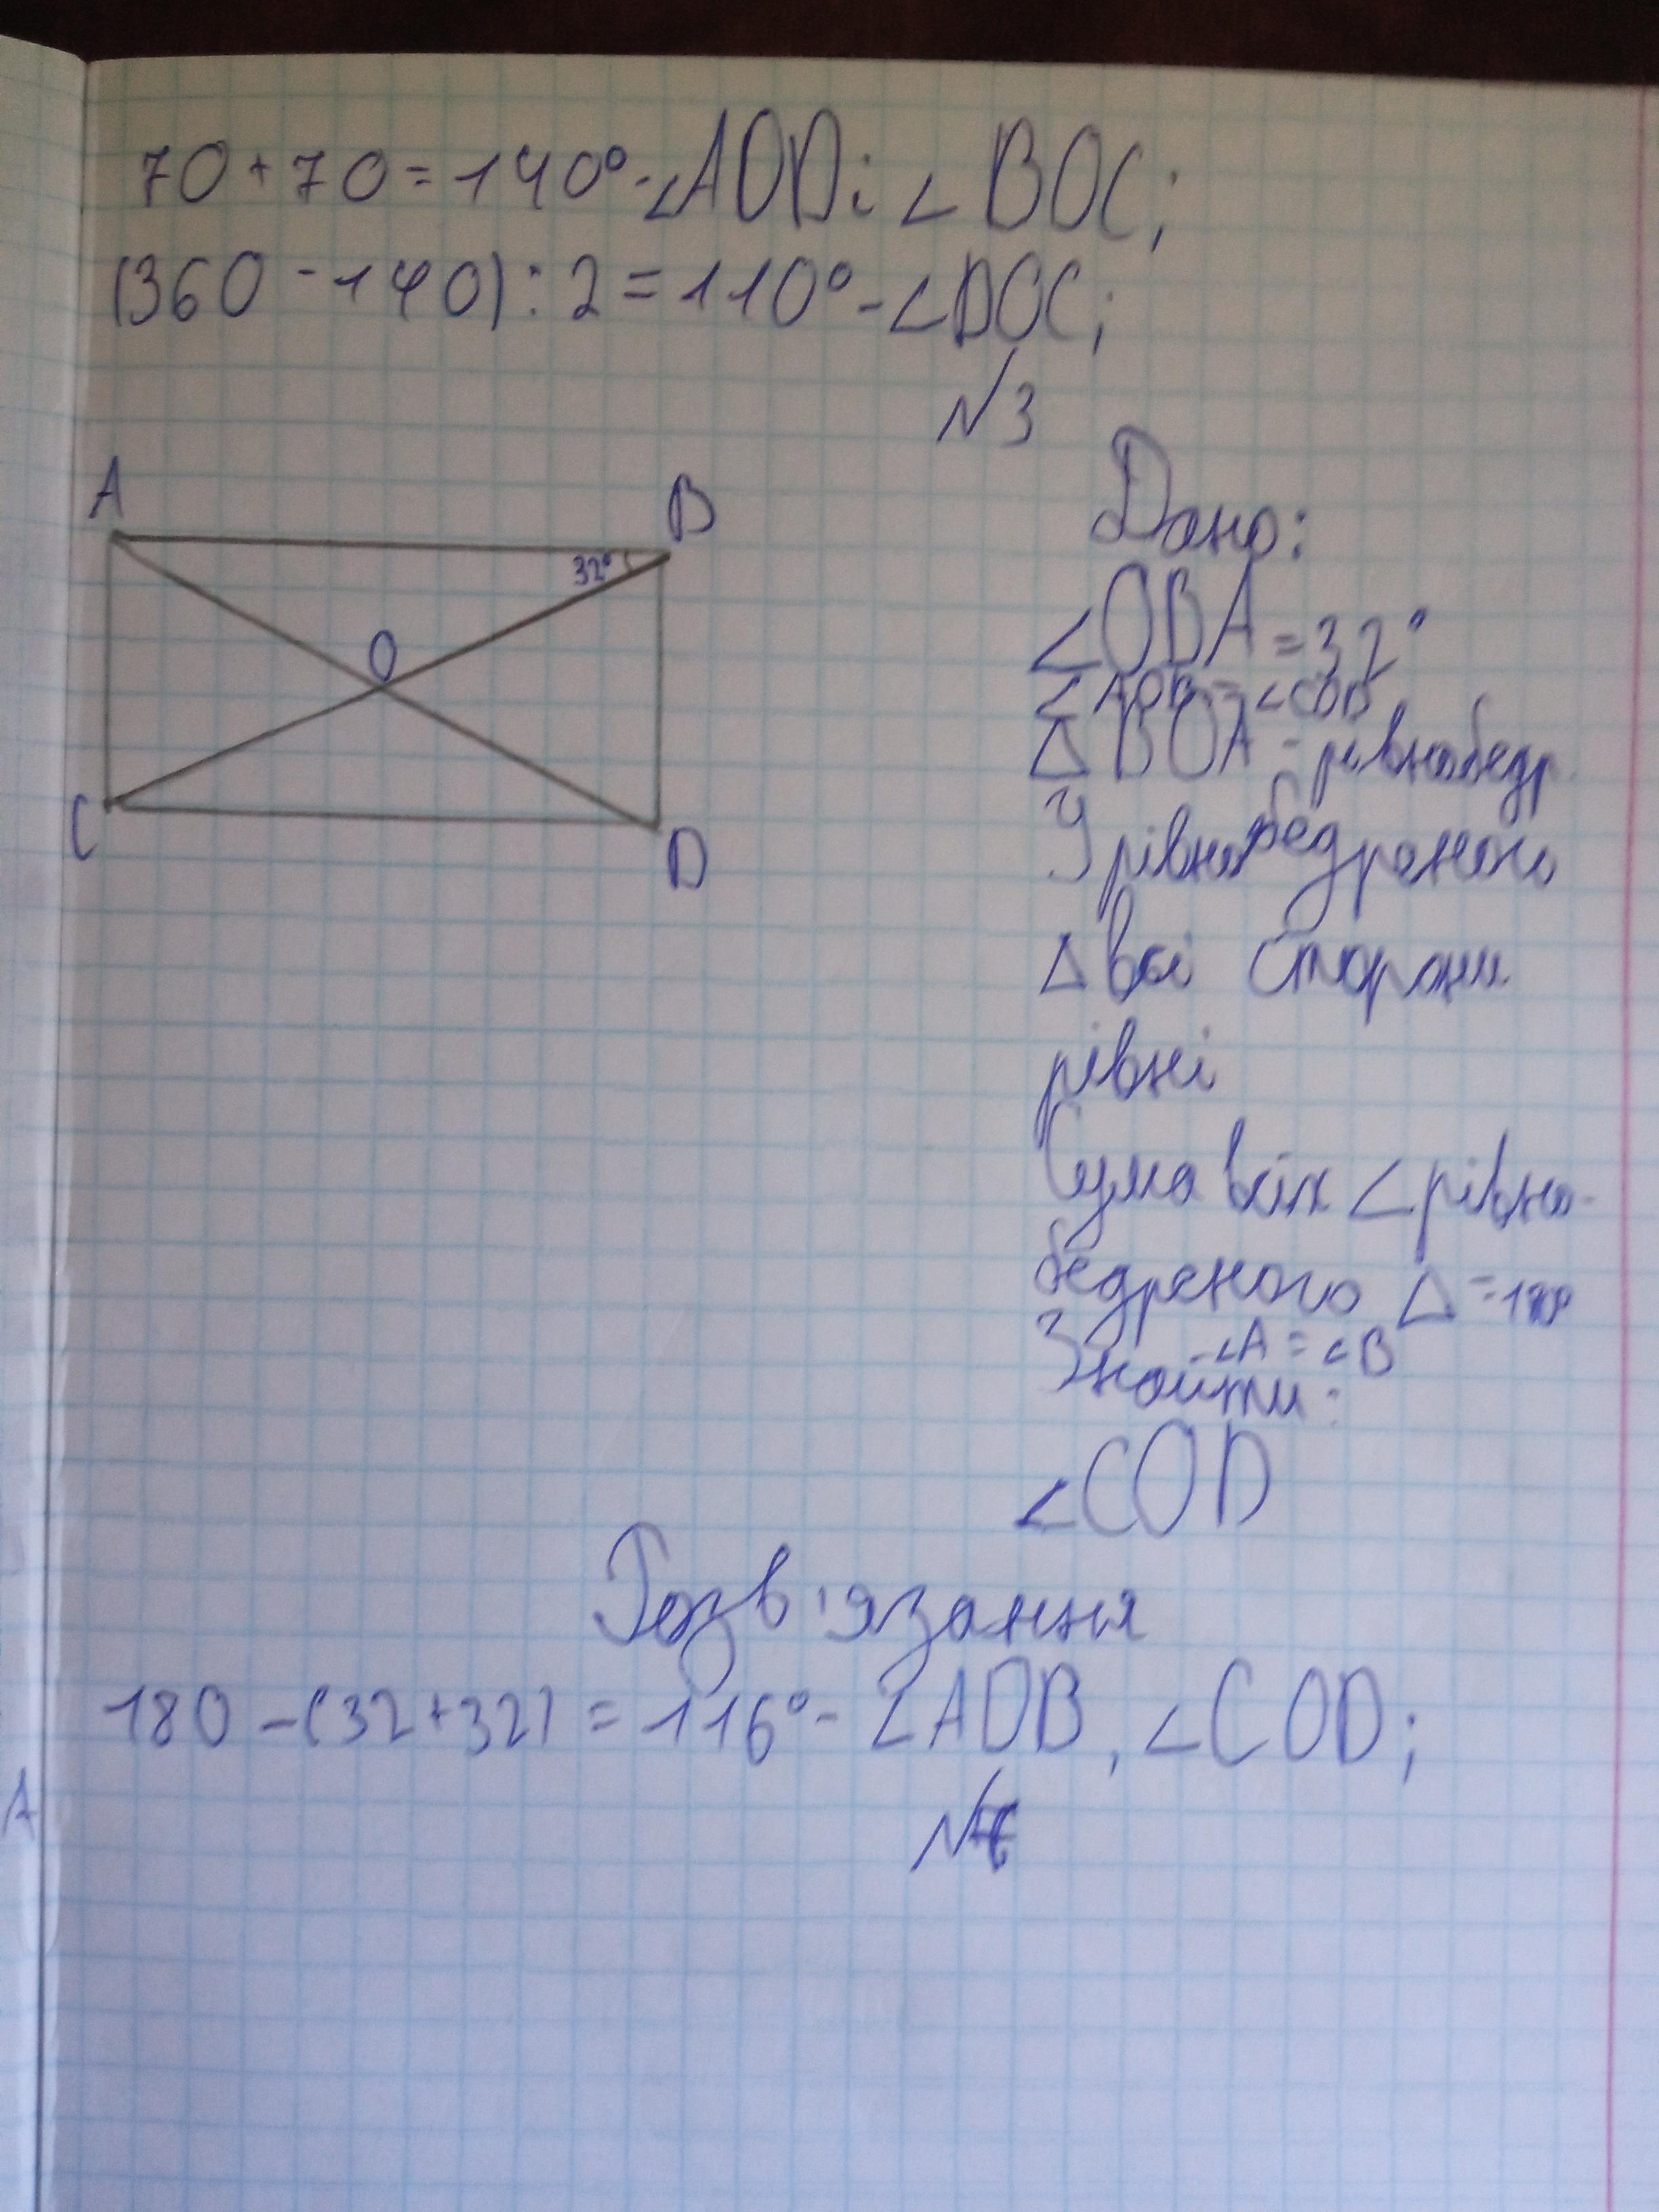 70+70=140°-∠AOD i ∠BOC;
(360-140):2=110°-∠DOC;
N3
A
B
32°
O
C
D
Дано:
∠OBA=32°
∠AOB=∠COD
△BOA-рівнобедр.
У рівнобедреного
△ всі сторони
рівні
Сума всіх ∠ рівно-
бедреного △=180°
∠A=∠B
Знайти:
∠COD
Розв'язання
180-(32+32)=116°-∠AOB, ∠COD;
A